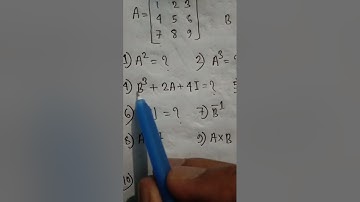 A = [1 2 3
4 5 6
7 8 9] B
1) A² = ? 2) A³ = ?
4) B³ + 2A + 4I = ?
6) I = ? 7) B⁻¹
8) A 9) A×B
10)